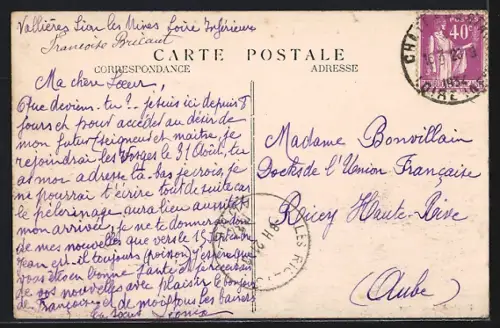 Vallières Sion les Mines Loire Inférieure
Françoise Précaut
CARTE POSTALE
CORRESPONDANCE
ADRESSE
Ma chère Sœur!
Que deviens-tu? Je suis ici depuis 8
jours et pour accéder au désir de
mon futur (seigneur et maître, je
rejoindrai les Vosges le 31 Août, tu
as mon adresse là-bas je crois, je
ne pourrai t'écrire tout de suite car
le pèlerinage aura lieu aussitôt
mon arrivée, je ne te donnerai donc
de mes nouvelles que vers le 15 septembre
Jean est-il toujours (poisson) J'espère que
vous êtes en bonne santé et je recevrais
de vos nouvelles avec plaisir le bonjour
de Françoise et de moi tous les baisers
ta sœur
Madame Bonvillain
Docks de l'Union Française
Ricey Haute-Rive
(Aube)
POSTES
40c
1934
LES RIC